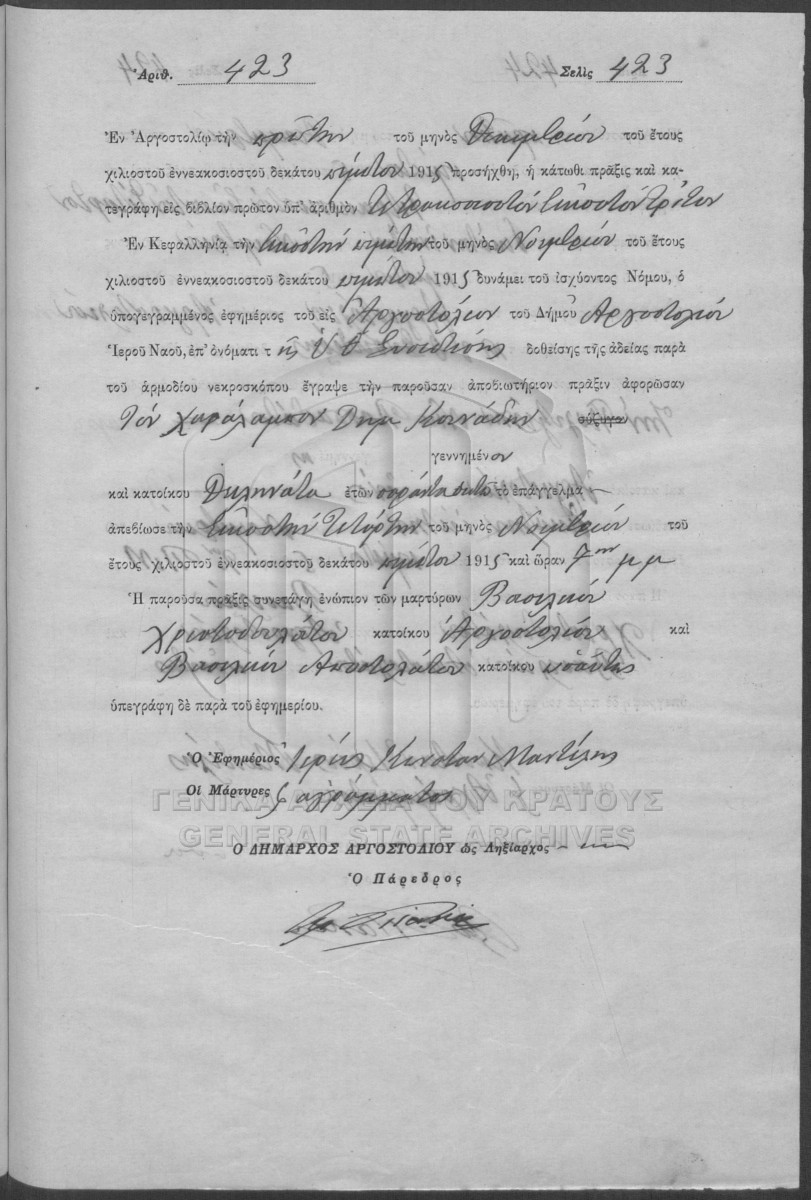 Ἀριθ. 423 Σελὶς 423
Ἐν Ἀργοστολίῳ τὴν πρώτην τοῦ μηνὸς Δεκεμβρίου τοῦ ἔτους
χιλιοστοῦ ἐννεακοσιοστοῦ δεκάτου πέμπτου 1915 προσήχθη, ἡ κάτωθι πρᾶξις καὶ κα-
τεγράφη εἰς βιβλίον πρῶτον ὑπ' ἀριθμὸν Τετρακοσιοστὸν Εἰκοστὸν Τρίτον
Ἐν Κεφαλληνίᾳ τὴν Εἰκοστὴν πέμπτην τοῦ μηνὸς Νοεμβρίου τοῦ ἔτους
χιλιοστοῦ ἐννεακοσιοστοῦ δεκάτου πέμπτου 1915 δυνάμει τοῦ ἰσχύοντος Νόμου, ὁ
ὑπογεγραμμένος ἐφημέριος τοῦ εἰς Ἀργοστόλιον τοῦ Δήμου Ἀργοστολίου
Ἱεροῦ Ναοῦ, ἐπ' ὀνόματι τῆς Υ Θ Σισσιώτισσης δοθείσης τῆς ἀδείας παρὰ
τοῦ ἁρμοδίου νεκροσκόπου ἔγραψε τὴν παροῦσαν ἀποβιωτήριον πρᾶξιν ἀφορῶσαν
Τὸν Χαράλαμπον Δημ Κουνάδην σύζυγο
γεννημένον
καὶ κατοίκου Διλινάτα ἐτῶν σαράντα ὀκτὼ τὸ ἐπάγγελμα —
ἀπεβίωσε τὴν Εἰκοστὴν Τετάρτην τοῦ μηνὸς Νοεμβρίου τοῦ
ἔτους χιλιοστοῦ ἐννεακοσιοστοῦ δεκάτου πέμπτου 1915 καὶ ὥραν 7ην μ μ
Ἡ παροῦσα πρᾶξις συνετάγη ἐνώπιον τῶν μαρτύρων Βασιλείου
Χριστοδουλάτου κατοίκου Ἀργοστολίου καὶ
Βασιλείου Ἀποστολάτου κατοίκου ὡσαύτως
ὑπεγράφη δὲ παρὰ τοῦ ἐφημερίου.
Ὁ Ἐφημέριος Ἱερεὺς Κωνσταν
Οἱ Μάρτυρες ἀγράμματοι
ΓΕΝΙΚΑ ΑΡΧΕΙΑ ΤΟΥ ΚΡΑΤΟΥΣ
GENERAL STATE ARCHIVES
Ο ΔΗΜΑΡΧΟΣ ΑΡΓΟΣΤΟΛΙΟΥ ὡς Ληξίαρχος
Ὁ Πάρεδρος